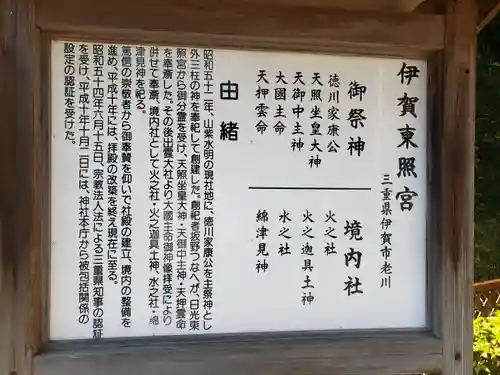 伊賀東照宮
三重県伊賀市老川
御祭神
徳川家康公
天照坐皇大神
天御中主神
大國主命
天押雲命
境内社
火之社
火之迦具土神
水之社
綿津見神
由緒
昭和五十二年、山紫水明の現社地に、徳川家康公を主祭神とし
外三柱の神を奉祀して創建した。創祀者坂野つな人が、日光東
照宮から御分霊を受け、天照坐皇大神・天御中主神・天押雲命
を奉斎した。その後出雲大社より、大國主命御神像拝受により
併せて奉斎、境内社として火之社・火之迦具土神、水之社・綿
津見神を祀る。
篤信の崇敬者から御奉賛を仰いで社殿の建立、境内の整備を
進め、平成十年には、拝殿の改築を終え現在に至る。
昭和五十四年六月十五日、宗教法人法による三重県知事の認証
を受け、平成十年十月二日には、神社本庁から被包括関係の
設定の認証を受けた。